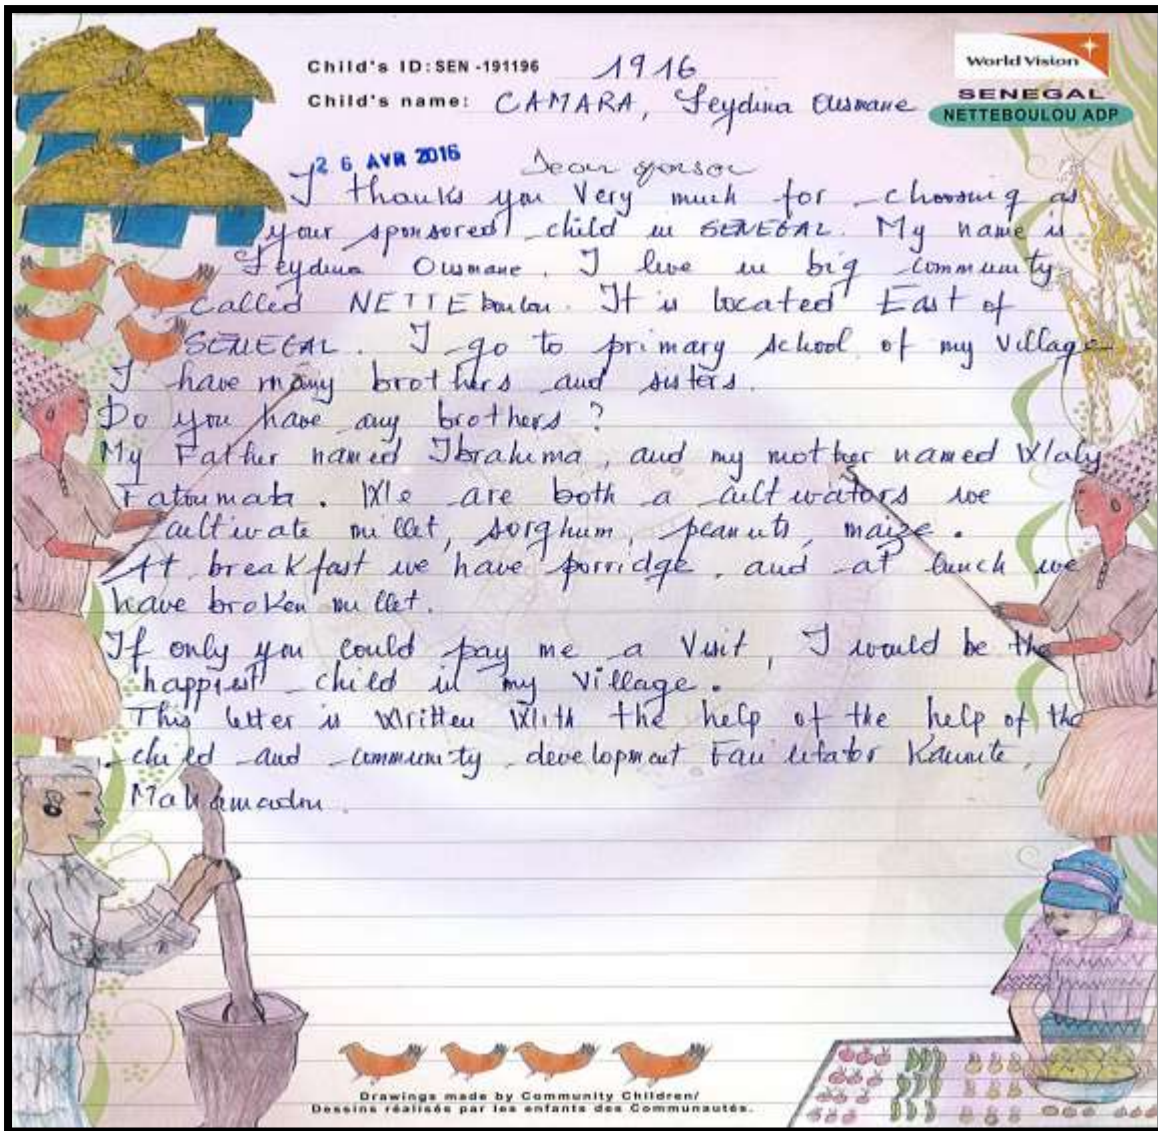 Child's ID: SEN -191196 1916
World Vision
Child's name: CAMARA, Seydina Ousmane
SENEGAL
NETTEBOULOU ADP
26 AVR 2016 Dear sponsor
I thanks you Very much for choosing as
your sponsored child in SENEGAL. My name is
Seydina Ousmane. I live in big community
called NETTEboulou. It is located East of
SENEGAL. I go to primary school of my Village
I have many brothers and sisters.
Do you have any brothers?
My Father named Ibrahima, and my mother named Waly
Fatoumata. We are both a cultivators we
cultivate millet, sorghum, peanuts, maize.
At breakfast we have porridge, and at lunch we
have broken millet.
If only you could pay me a Visit, I would be the
happiest child in my Village.
This letter is Written With the help of the help of the
child and community development Facilitator
Mahamadou.
Drawings made by Community Children/
Dessins réalisés par les enfants des Communautés.